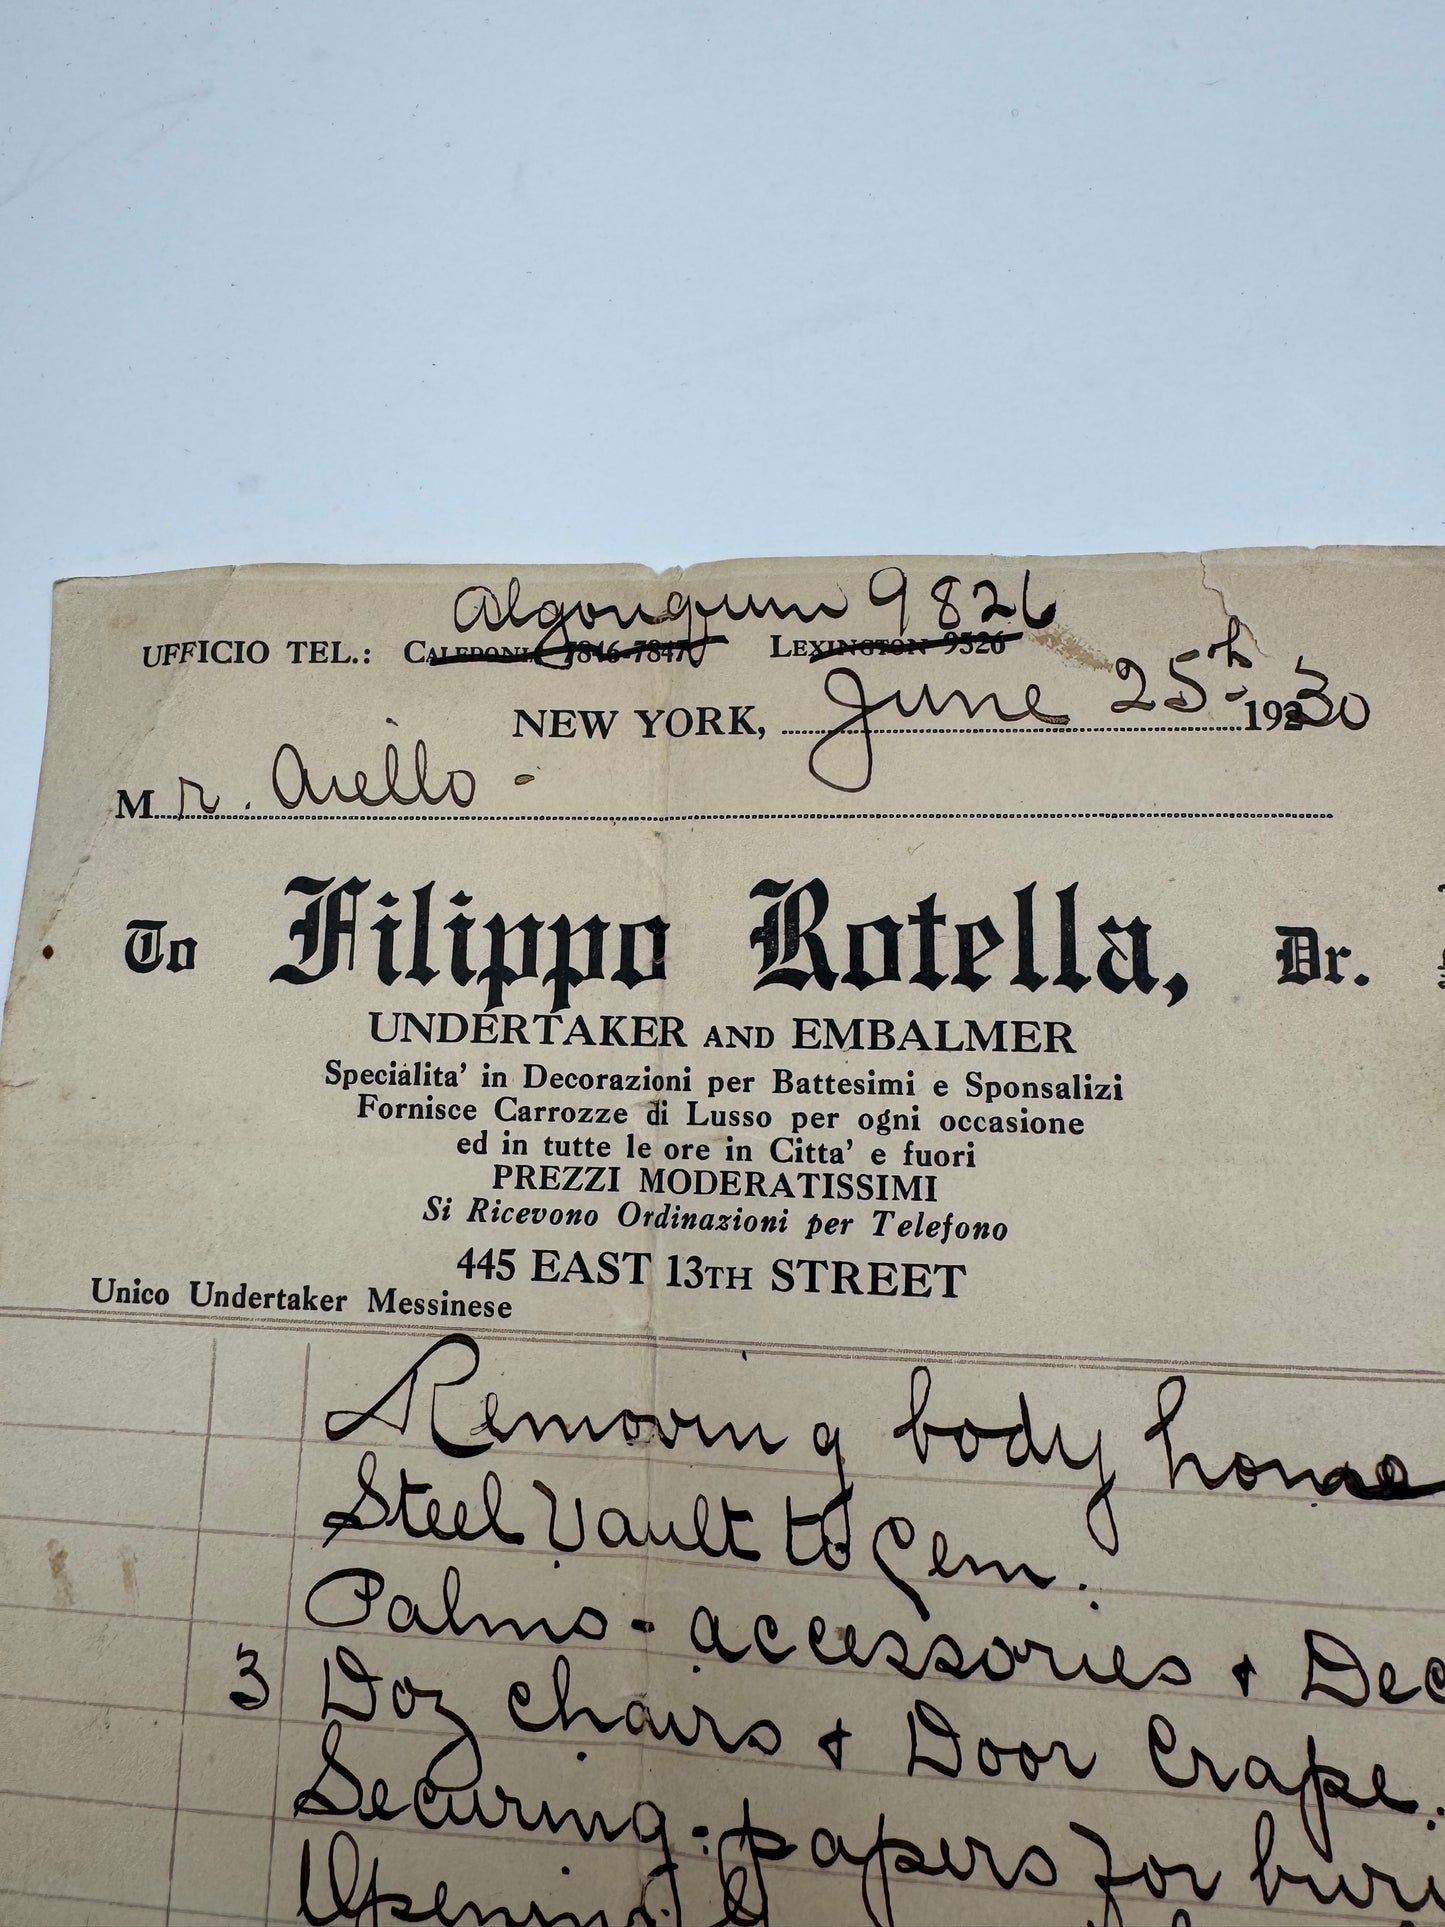 Algonquin 9826
UFFICIO TEL.: CALEDONIA 7846-7847 LEXINGTON 9526
NEW YORK, June 25th 1930
Mr. Aiello -
To Filippo Rotella, Dr.
UNDERTAKER AND EMBALMER
Specialita' in Decorazioni per Battesimi e Sponsalizi
Fornisce Carrozze di Lusso per ogni occasione
ed in tutte le ore in Citta' e fuori
PREZZI MODERATISSIMI
Si Ricevono Ordinazioni per Telefono
445 EAST 13TH STREET
Unico Undertaker Messinese
Removing body home
Steel Vault to Cem.
Palms - accessories + Dec
3 Doz chairs + Door Crape.
Securing papers for buri
Opening